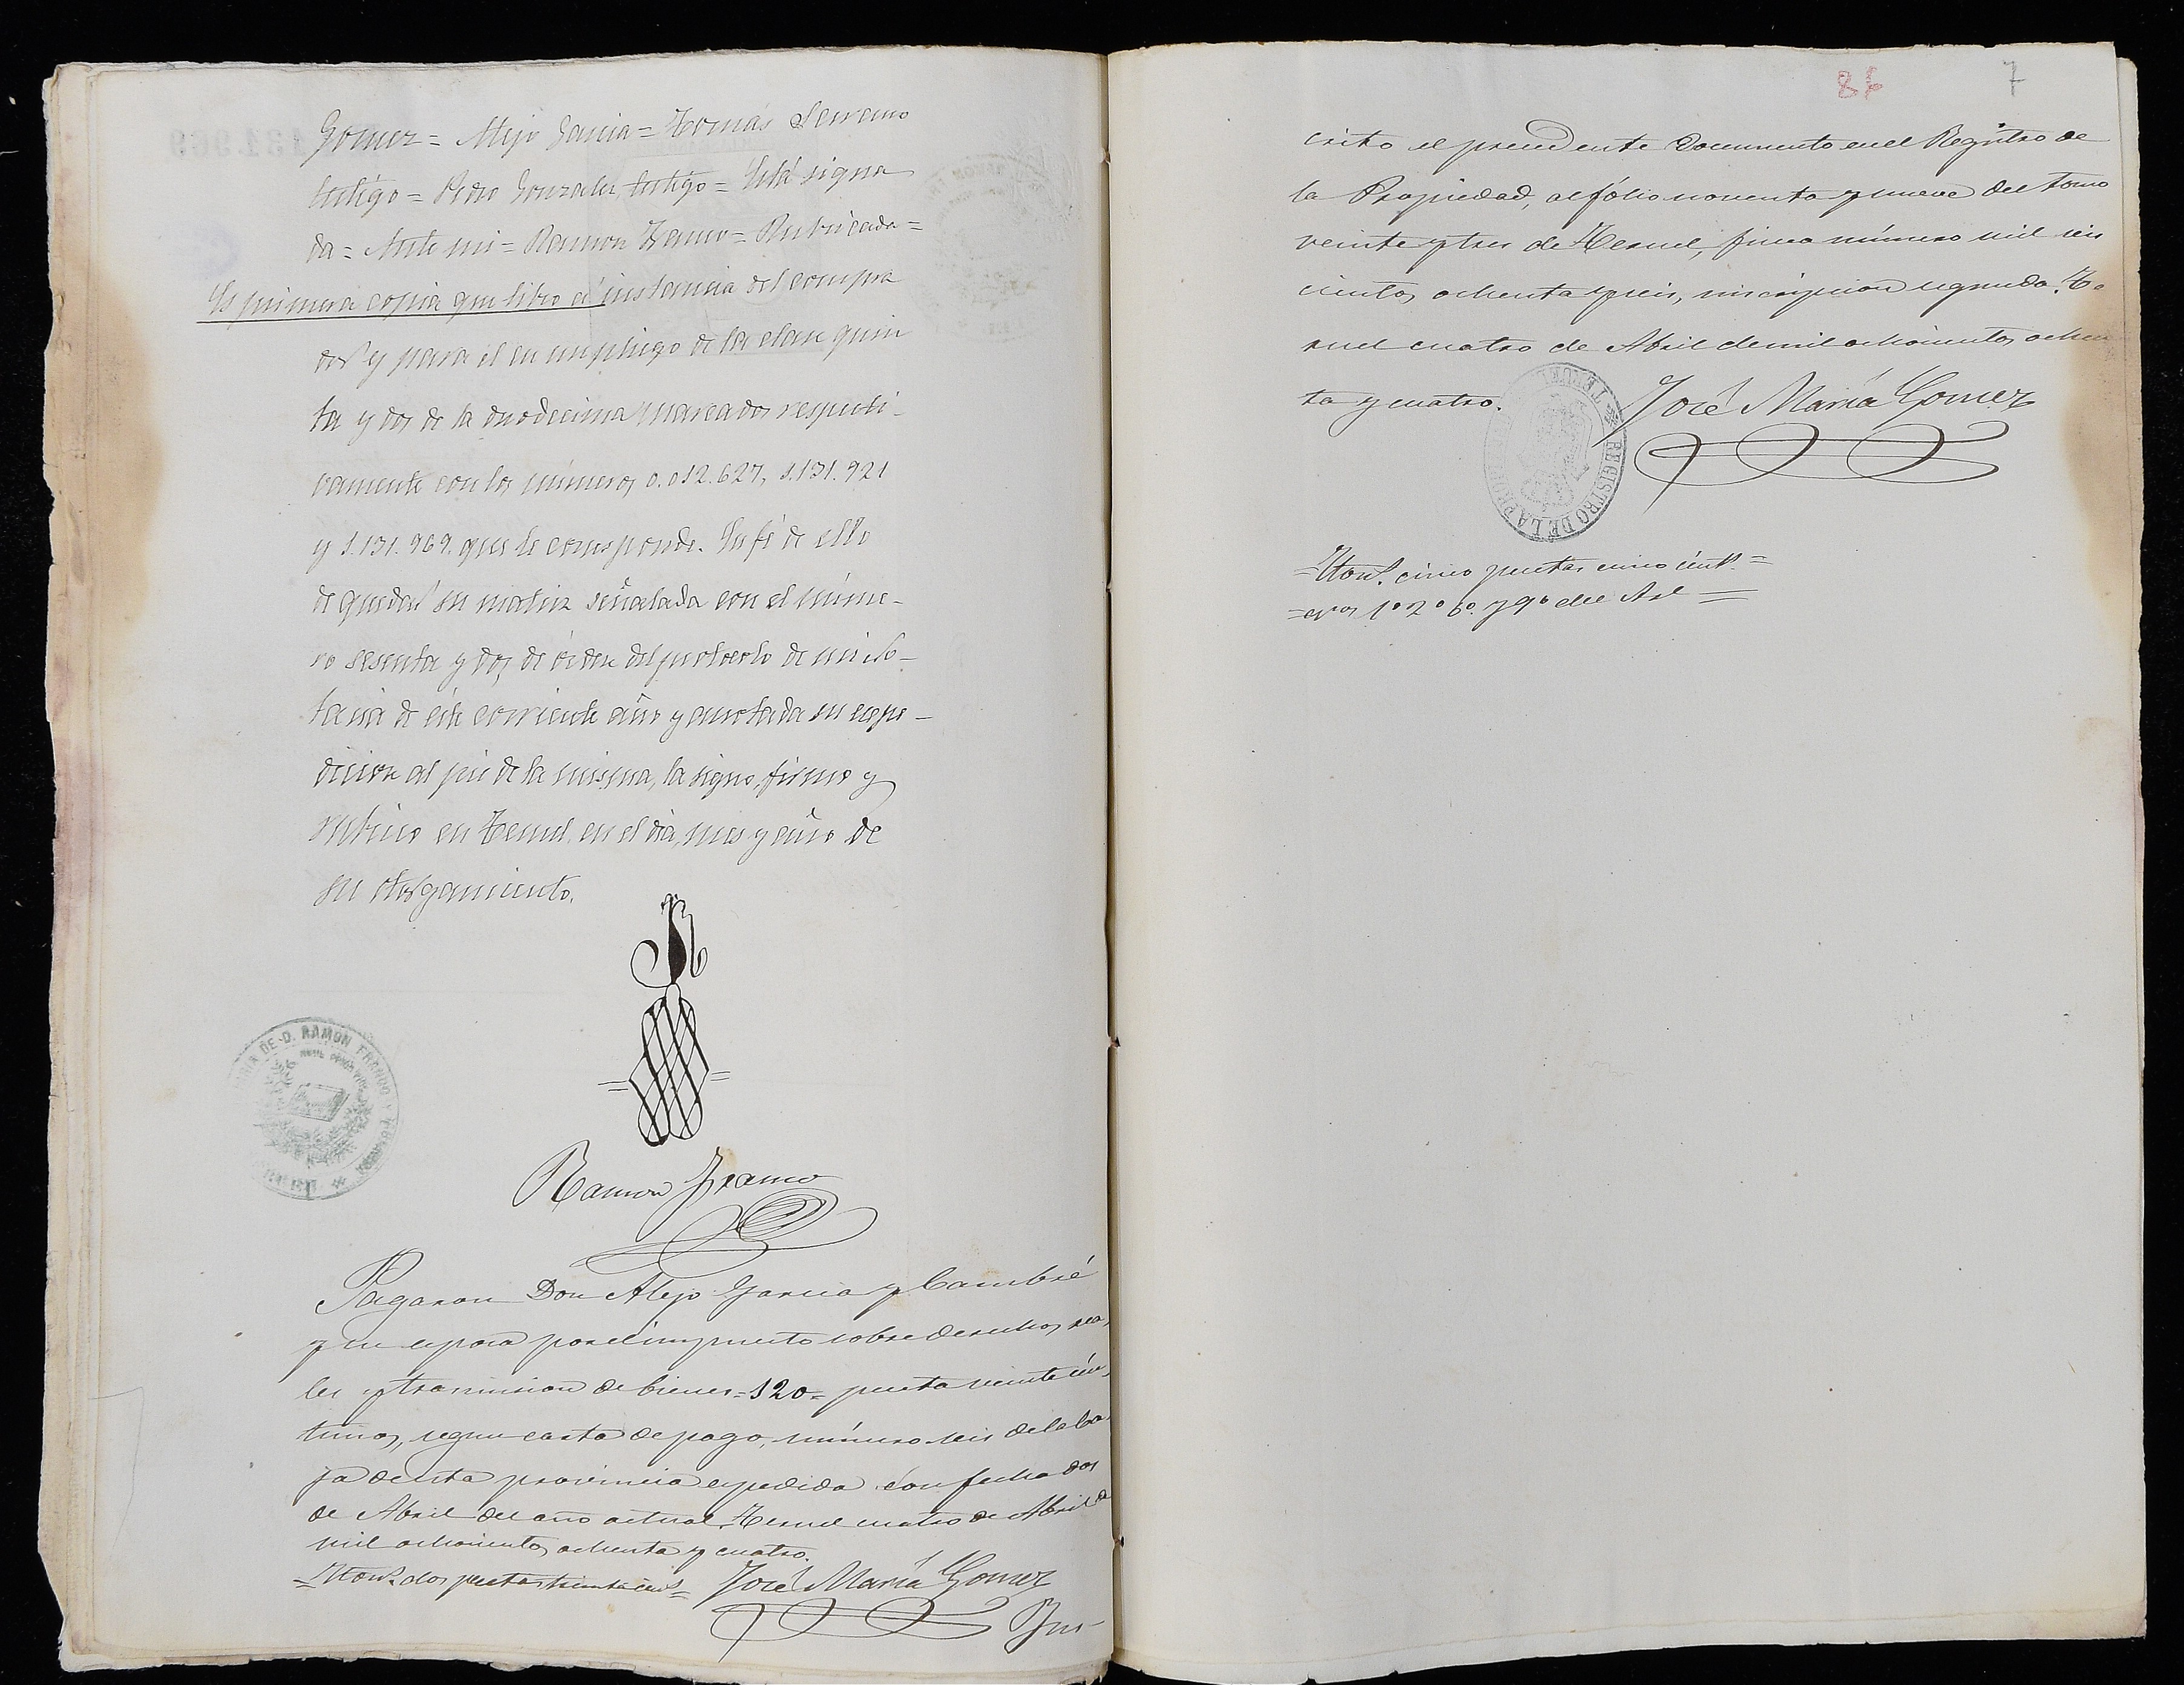 Gomez = Alejo Garcia = Tomás Serrano
testigo = Pedro Gonzalez, testigo = Está signa
da = Ante mi = Ramon Franco = Rubricada =
Es primera copia que libro á instancia del compra
dor y para el en un pliego de la clase quin
ta y dos de la duodecima marcados respecti-
vamente con los números 0.012.627, 1.131.921
y 1.131.969. que le corresponde. En fé de ello
de quedar su matriz señalada con el núme-
ro sesenta y dos de órden del protocolo de mi No-
taria de este corriente año y anotada su expe-
dicion al pié de la misma, la signo, firmo y
rubrico en Teruel, en el dia, mes y año de
su otorgamiento.
DE D. RAMON FRANCO Y
Ramon Franco
Pagaron Don Alejo Garcia y Cambré
y su esposa por el impuesto sobre derechos rea
les y trasmision de bienes = 120 = peseta veinte cén
timos, segun carta de pago, número seis de la Ca
ja de esta provincia expedida con fecha dos
de Abril del año actual. Teruel cuatro de Abril de
mil ochocientos ochenta y cuatro.
= Hons. dos pesetas treinta cents =
José María Gomez
Ins-
86 7
crito el precedente Documento en el Registro de
la Propiedad, al fólio noventa y nueve del tomo
veinte y tres de Teruel, finca número mil seis
cientos ochenta y seis, inscripcion segunda. Te
ruel cuatro de Abril de mil ochocientos ochen
ta y cuatro.
José María Gomez
REGISTRO DE LA PROPIEDAD TERUEL
= Hons. cinco pesetas cinco cénts. =
= nros 1º 2º 6º y 9º del Arl =